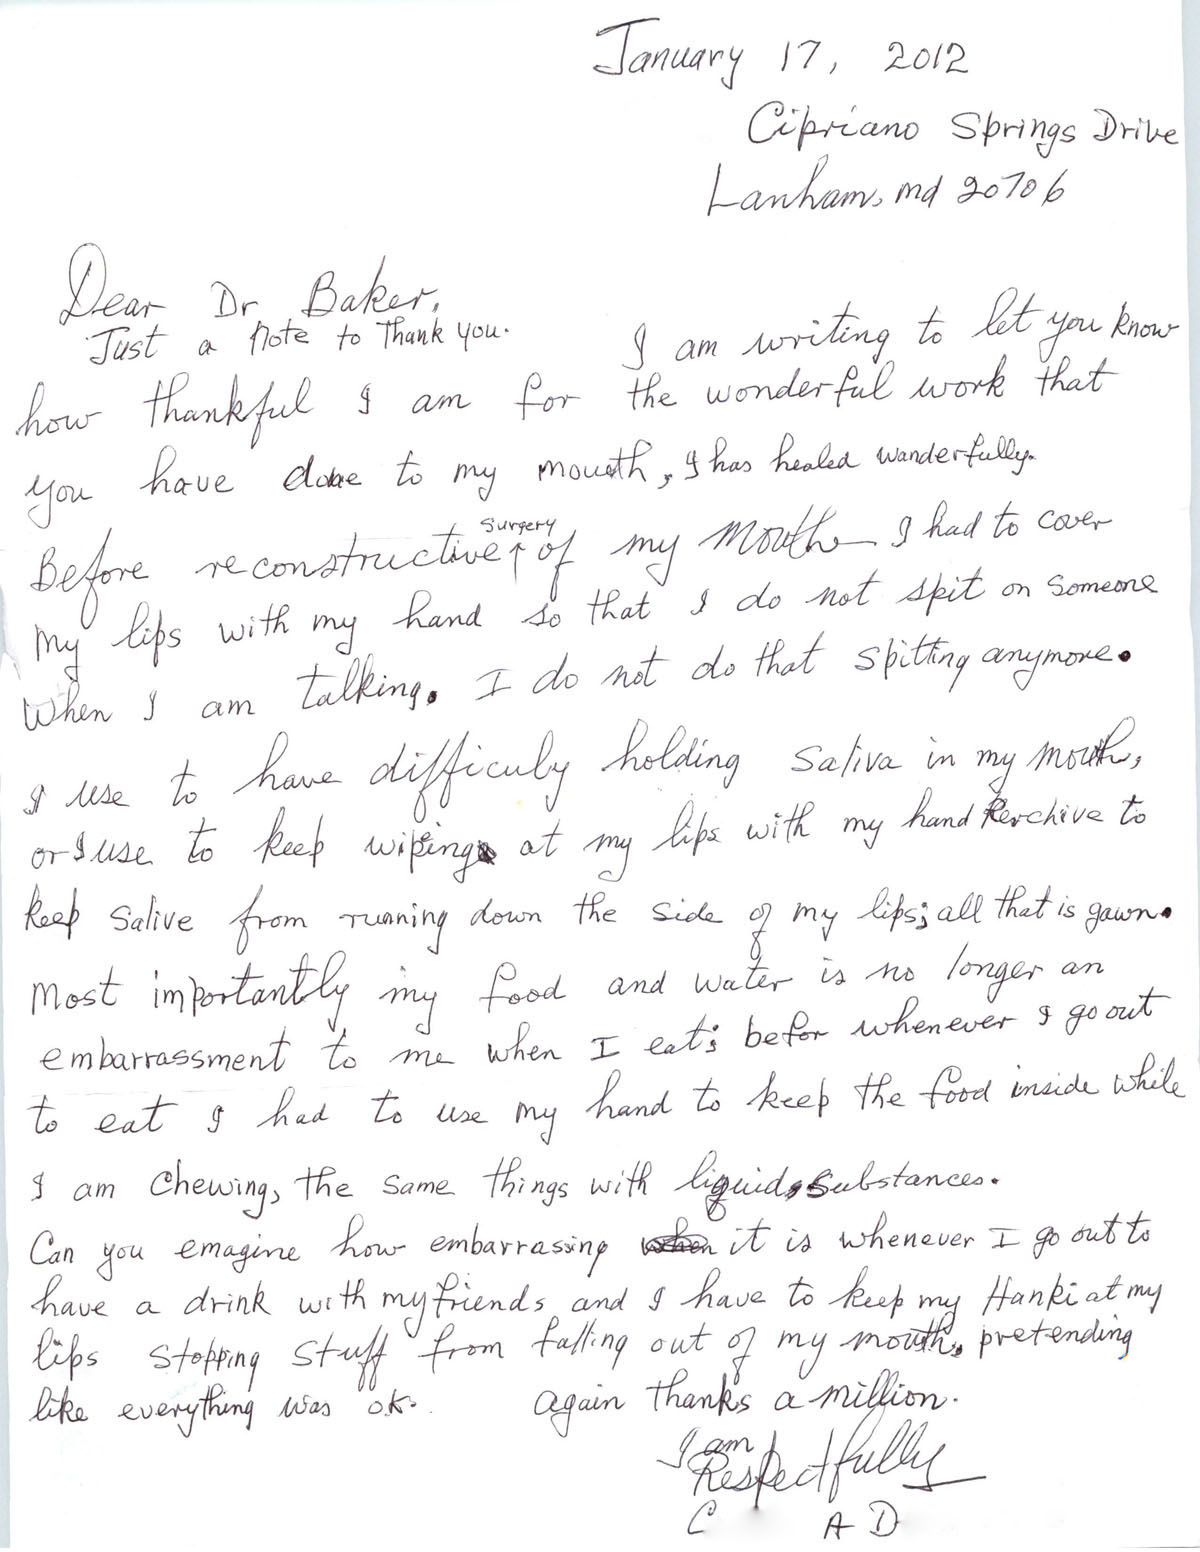 January 17, 2012
Cipriano Springs Drive
Lanham, md 20706
Dear Dr Baker,
Just a note to Thank you.
I am writing to let you know
how thankful I am for the wonderful work that
you have done to my mouth, I has healed wanderfully.
Surgery
Before reconstructive ↑ of my mouth I had to cover
my lips with my hand so that I do not spit on someone
When I am talking. I do not do that spitting anymore.
I use to have difficulty holding saliva in my mouth,
or I use to keep wiping at my lips with my hand kerchive to
keep salive from running down the side of my lips; all that is gawn.
Most importantly my food and water is no longer an
embarrassment to me when I eat; befor whenever I go out
to eat I had to use my hand to keep the food inside while
I am chewing, the same things with liquid, substances.
Can you emagine how embarrassing it is whenever I go out to
have a drink with my friends, and I have to keep my Hanki at my
lips stopping stuff from falling out of my mouth, pretending
like everything was ok. again thanks a million.
I am
Respectfully
C A D